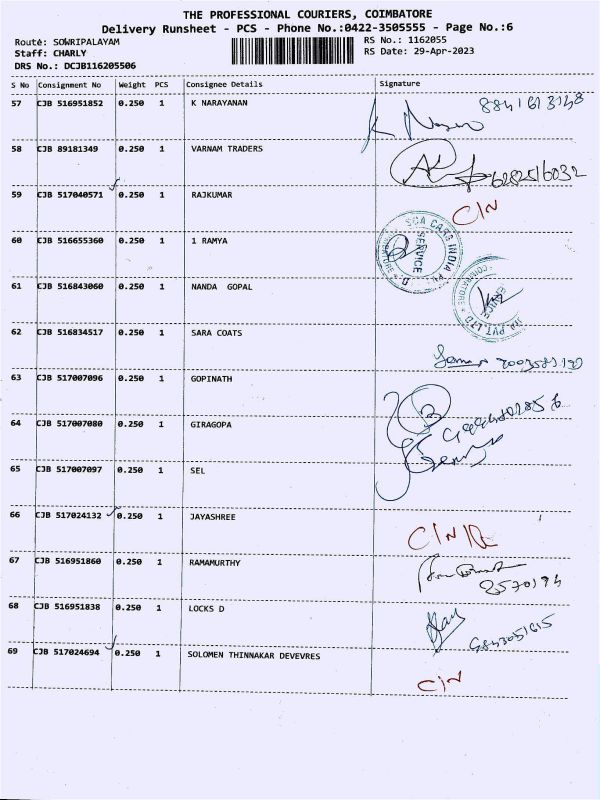 THE PROFESSIONAL COURIERS, COIMBATORE
Delivery Runsheet - PCS - Phone No.:0422-3505555 - Page No.:6
Route: SOWRIPALAYAM RS No.: 1162055
Staff: CHARLY RS Date: 29-Apr-2023
DRS No.: DCJB116205506
S No Consignment No Weight PCS Consignee Details Signature
57 CJB 516951852 0.250 1 K NARAYANAN
58 CJB 89181349 0.250 1 VARNAM TRADERS
6282516032
59 CJB 517040571 0.250 1 RAJKUMAR
C/N
60 CJB 516655360 0.250 1 1 RAMYA
SERVICE
61 CJB 516843060 0.250 1 NANDA GOPAL
62 CJB 516834517 0.250 1 SARA COATS
63 CJB 517007096 0.250 1 GOPINATH
64 CJB 517007080 0.250 1 GIRAGOPA
65 CJB 517007097 0.250 1 SEL
66 CJB 517024132 0.250 1 JAYASHREE
67 CJB 516951860 0.250 1 RAMAMURTHY
68 CJB 516951838 0.250 1 LOCKS D
69 CJB 517024694 0.250 1 SOLOMEN THINNAKAR DEVEVRES
C/N